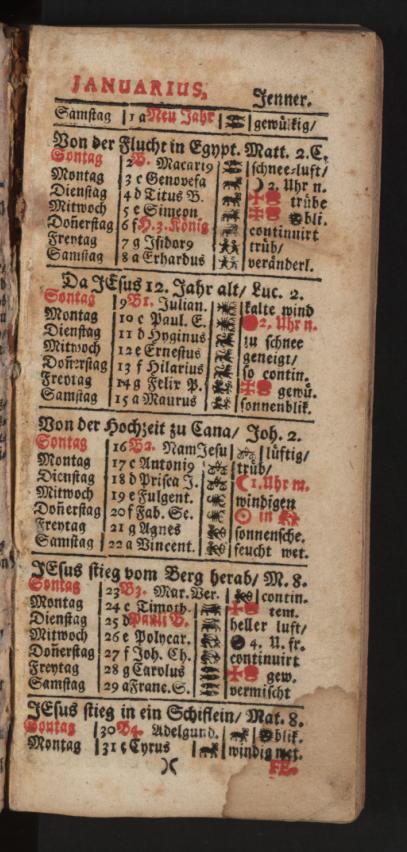 JANUARIUS. Jenner.
Samstag 1 a Neu Jahr gewülkig/
Von der Flucht in Egypt. Matt. 2. C.
Sontag 2 B. Macari9 schnee-luft/
Montag 3 c Genovefa ☽ 2. Uhr n.
Dienstag 4 d Titus B. trübe
Mitwoch 5 e Simeon bli.
Doñerstag 6 f H. 3. König continuirt
Freytag 7 g Isidor9 trüb/
Samstag 8 a Erhardus veränderl.
Da JEsus 12. Jahr alt/ Luc. 2.
Sontag 9 B1. Julian. kalte wind
Montag 10 c Paul. E. 2. Uhr n.
Dienstag 11 d Hyginus zu schnee
Mitwoch 12 e Ernestus geneigt/
Doñerstag 13 f Hilarius so contin.
Freytag 14 g Felix P. gewü.
Samstag 15 a Maurus sonnenblik.
Von der Hochzeit zu Cana/ Joh. 2.
Sontag 16 B2. Nam Jesu lüftig/
Montag 17 c Antoni9 trüb/
Dienstag 18 d Prisca J. ☾ 1. Uhr m.
Mitwoch 19 e Fulgent. windigen
Doñerstag 20 f Fab. Se. ☉ in
Freytag 21 g Agnes sonnensche.
Samstag 22 a Vincent. feucht wet.
JEsus stieg vom Berg herab/ M. 8.
Sontag 23 B3. Mar. Ver. contin.
Montag 24 c Timoth. tem.
Dienstag 25 d Pauli B. heller luft/
Mitwoch 26 e Polycar. 4. U. fr.
Doñerstag 27 f Joh. Ch. continuirt
Freytag 28 g Carolus gew.
Samstag 29 a Franc. S. vermischt
JEsus stieg in ein Schiflein/ Mat. 8.
Sontag 30 B4. Adelgund. blik.
Montag 31 c Cyrus windig wet.
)( FE-